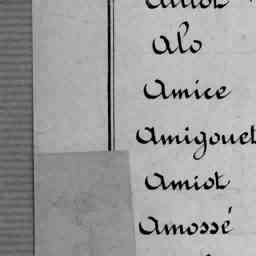 Alo
Amice
Amigouet
Amiot
Amossé